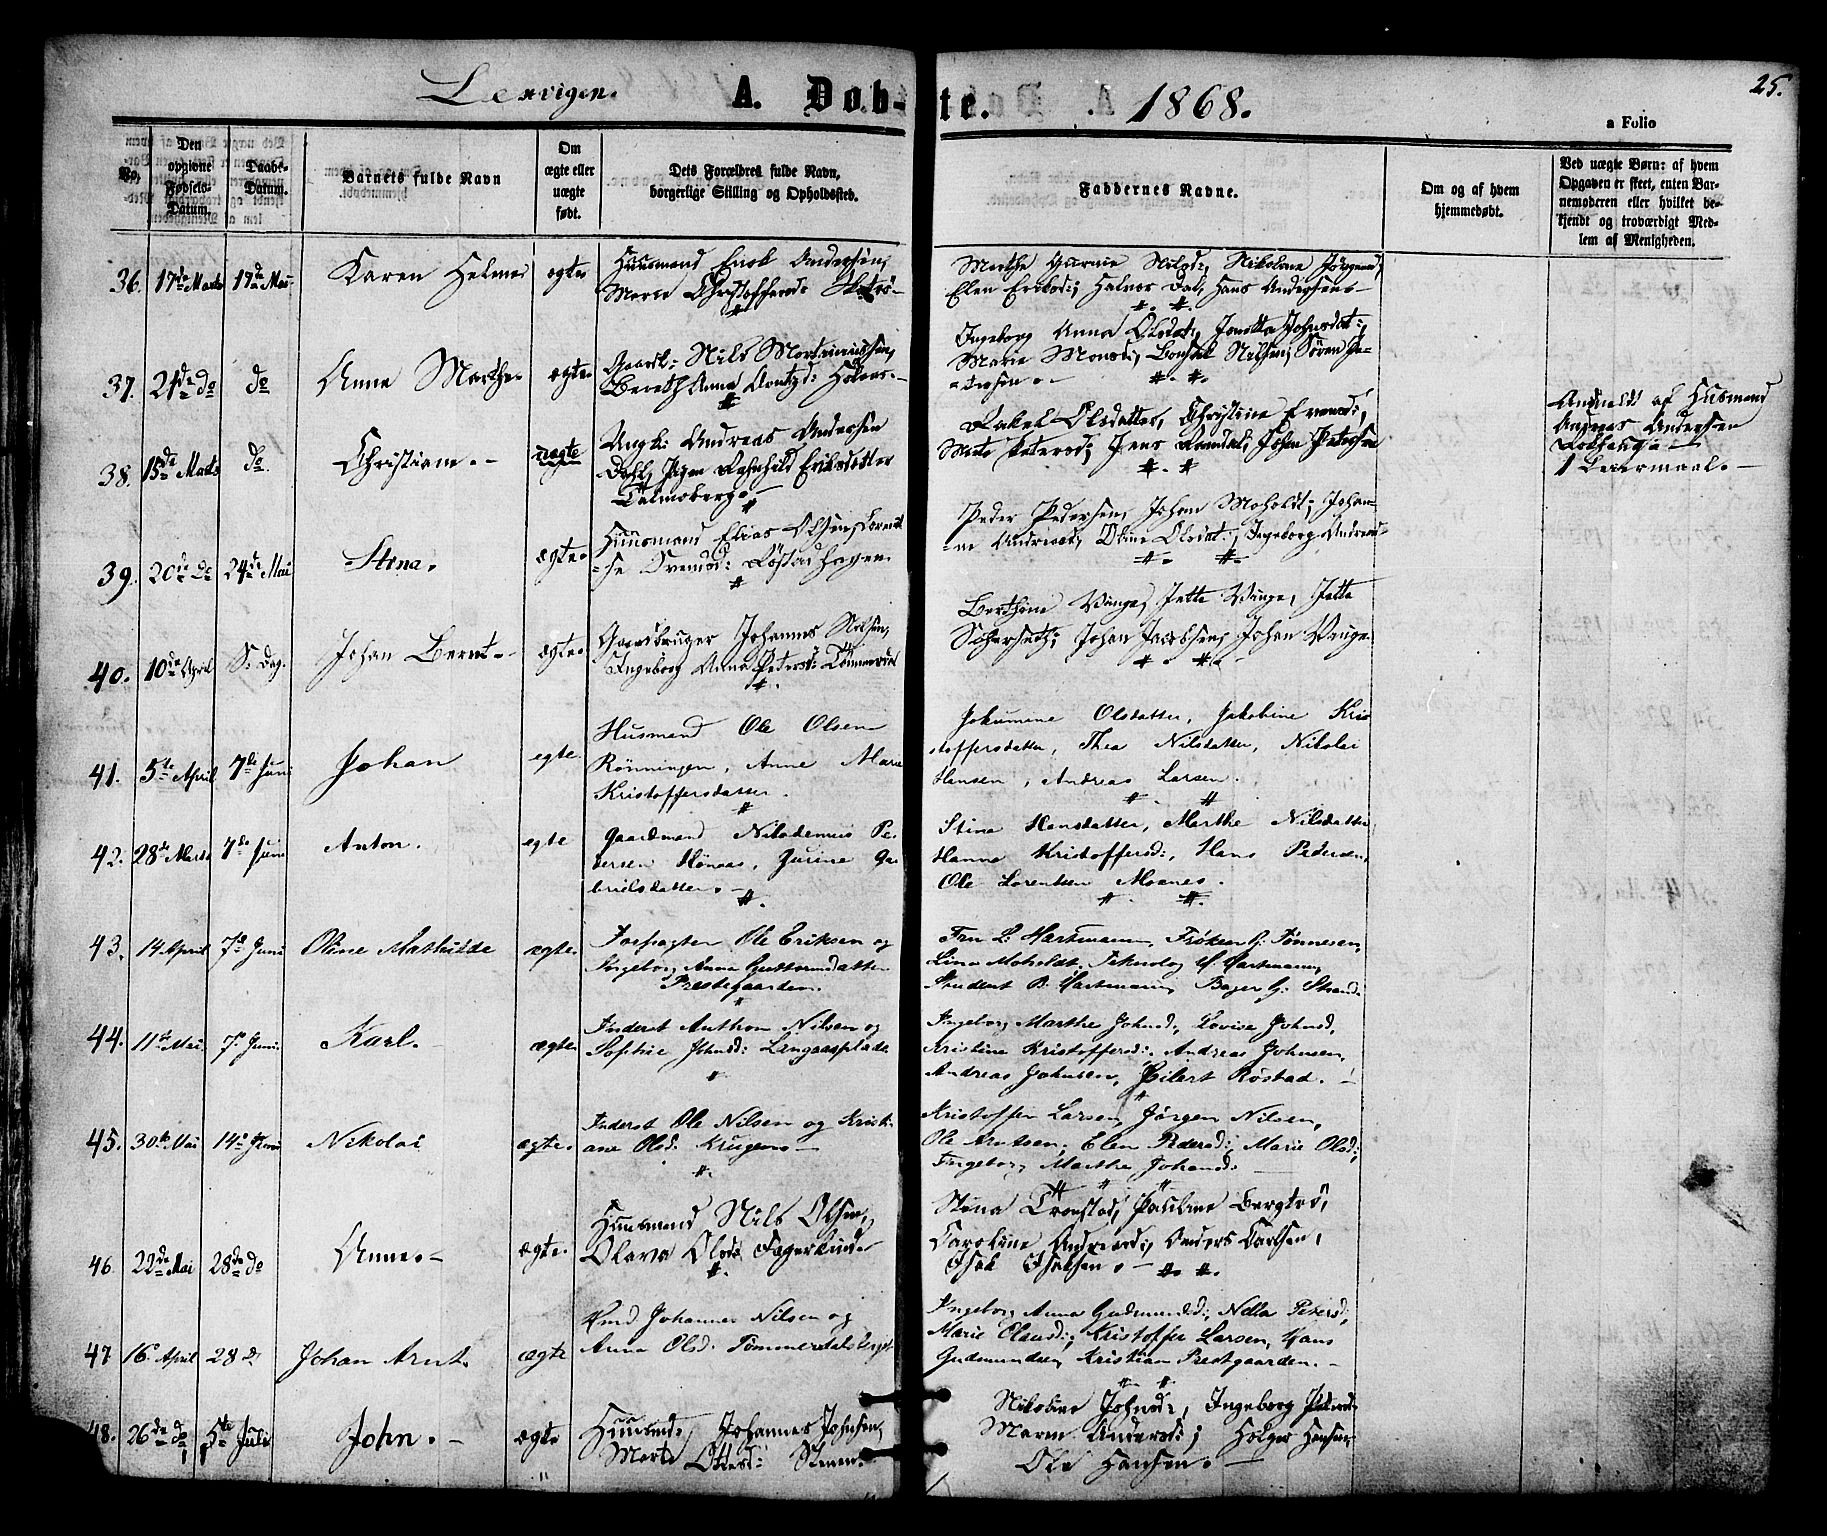 25.
Lexvigen. A. Døb-te. 1868.
a Folio
No.
Den opgivne Fødsels-Datum.
Daabs-Datum.
Barnets fulde Navn
Om ægte eller uægte født.
Dets Forældres fulde Navn, borgerlige Stilling og Opholdssted.
Faddernes Navne.
Om og af hvem hjemmedøbt.
Ved uægte Børn: af hvem Opgaven er skeet, enten Barnemoderen eller hvilket bekjendt og troværdigt Medlem af Menigheden.
36. 17de Marts 17de Mai Karen Helmine ægte
Huusmand Enok Andersen,
Marie Christoffersd:
Nilsd:, Nikoline Jørgensd,
Elen Eriksd:; Hans Andersen
37. 24de do do Anne Marthe ægte
Gaardb: Nils Martinussen,
Bereth Anna
Ingeborg Anna Olsdat:, Jonetta Johnsdat:,
Marie Monsd:; Nilsen; Sören Pe-
tersen
38. 15de Marts do. Christiane uægte
Ungk: Andreas Andersen
Pigen Ragnhild Eriksdatter
Rakel Olsdatter, Christine
Peter Jens John Petersen
Anmeldt af Husmand
Andreas Andersen
1 Leiermaal
39. 20de do 24de Mai Stina. ægte
Huusmand Elias Olsen, Lorent-
se Røstadhagen
Peder Pedersen, Johan Moholdt; Johan-
ne Oline Olsdat:, Ingeborg Andreas
40. 10de April S. Dag. Johan Bernt ægte
Gaardbruger Johannes Nilsen,
Ingeborg Anna Petersd: Tømmerdal
Berthine Vinge, Jette Vinge, Jette
Johan Jacobsen, Johan Vinge
41. 5te April 7de Juni Johan egte
Husmand Ole Olsen
Rönningen, Anne Marie
Kristoffersdatter.
Jokumine Olsdatter, Jakobine Kris
toffersdatter, Thea Nilsdatter, Nikolai
Hansen, Andreas Larsen.
42. 28de Marts 7de Juni Anton. egte
Gaardmand Nikodemus Pe-
dersen Hönaas, Jurine Ga
brielsdatter.
Stina Hansdatter, Marthe Nilsdatter
Hanna Kristoffersd:, Hans Pedersen,
Ole Lorentsen Moanes.
43. 14 April 7de Juni Oline Mathilde ægte
Forpagter Ole Eriksen og
Ingeborg Anna Guttormsdatter
Prestegaarden.
Fru L: Hartmann, Frøken G: Tønnesen,
Lina Moholdt, Teknolog H Hartmann,
Student B: Hartmann, Bager G: Strand.
44. 11te Mai 7de Juni Karl. ægte
Inderst Anthon Nilsen og
Sophie Johnsd: Langaasplads
Ingeborg Marthe Johnsd:, Lovise Johnsd,
Kristine Kristoffersd:, Andreas Johnsen,
Andreas Johnsen, Eilert Røstad.
45. 30te Mai 14de Juni Nikolai ægte
Inderst Ole Nilsen og Kristi
ane Olsd: Krugens
Kristoffer Larsen, Jørgen Nilsen,
Ole Arntsen, Elen Pedersd:, Marie Olsd:,
Ingeborg Marthe Johansd:
46. 22de Mai 28de do Anne. ægte
Huusmand Nils Olsen,
Olava Olsd: Fagerlund
Stina Tronstad, Pauline Bergtrö,
Caroline Andreasd:, Anders Carlsen,
Isak Isaksen.
47 16 April 28 do Johan Arnt. ægte
Hmd Johannes Nilsen og
Anna Olsd. Tømmerdalsberget
Ingeborg Anna Gudmundsd:, Nella Petersd:
Marie Olausd:, Kristoffer Larsen, Hans
Gudmundsen, Kristian Prestgaarden.
48. 26de do 5te Juli John. ægte
Huusmd: Johannes Johnsen,
Marte Ottesd:
Nikoline Johnsd:, Ingeborg Petersd:
Maren Andersd:; Holger Hansen,
Ole Hansen.